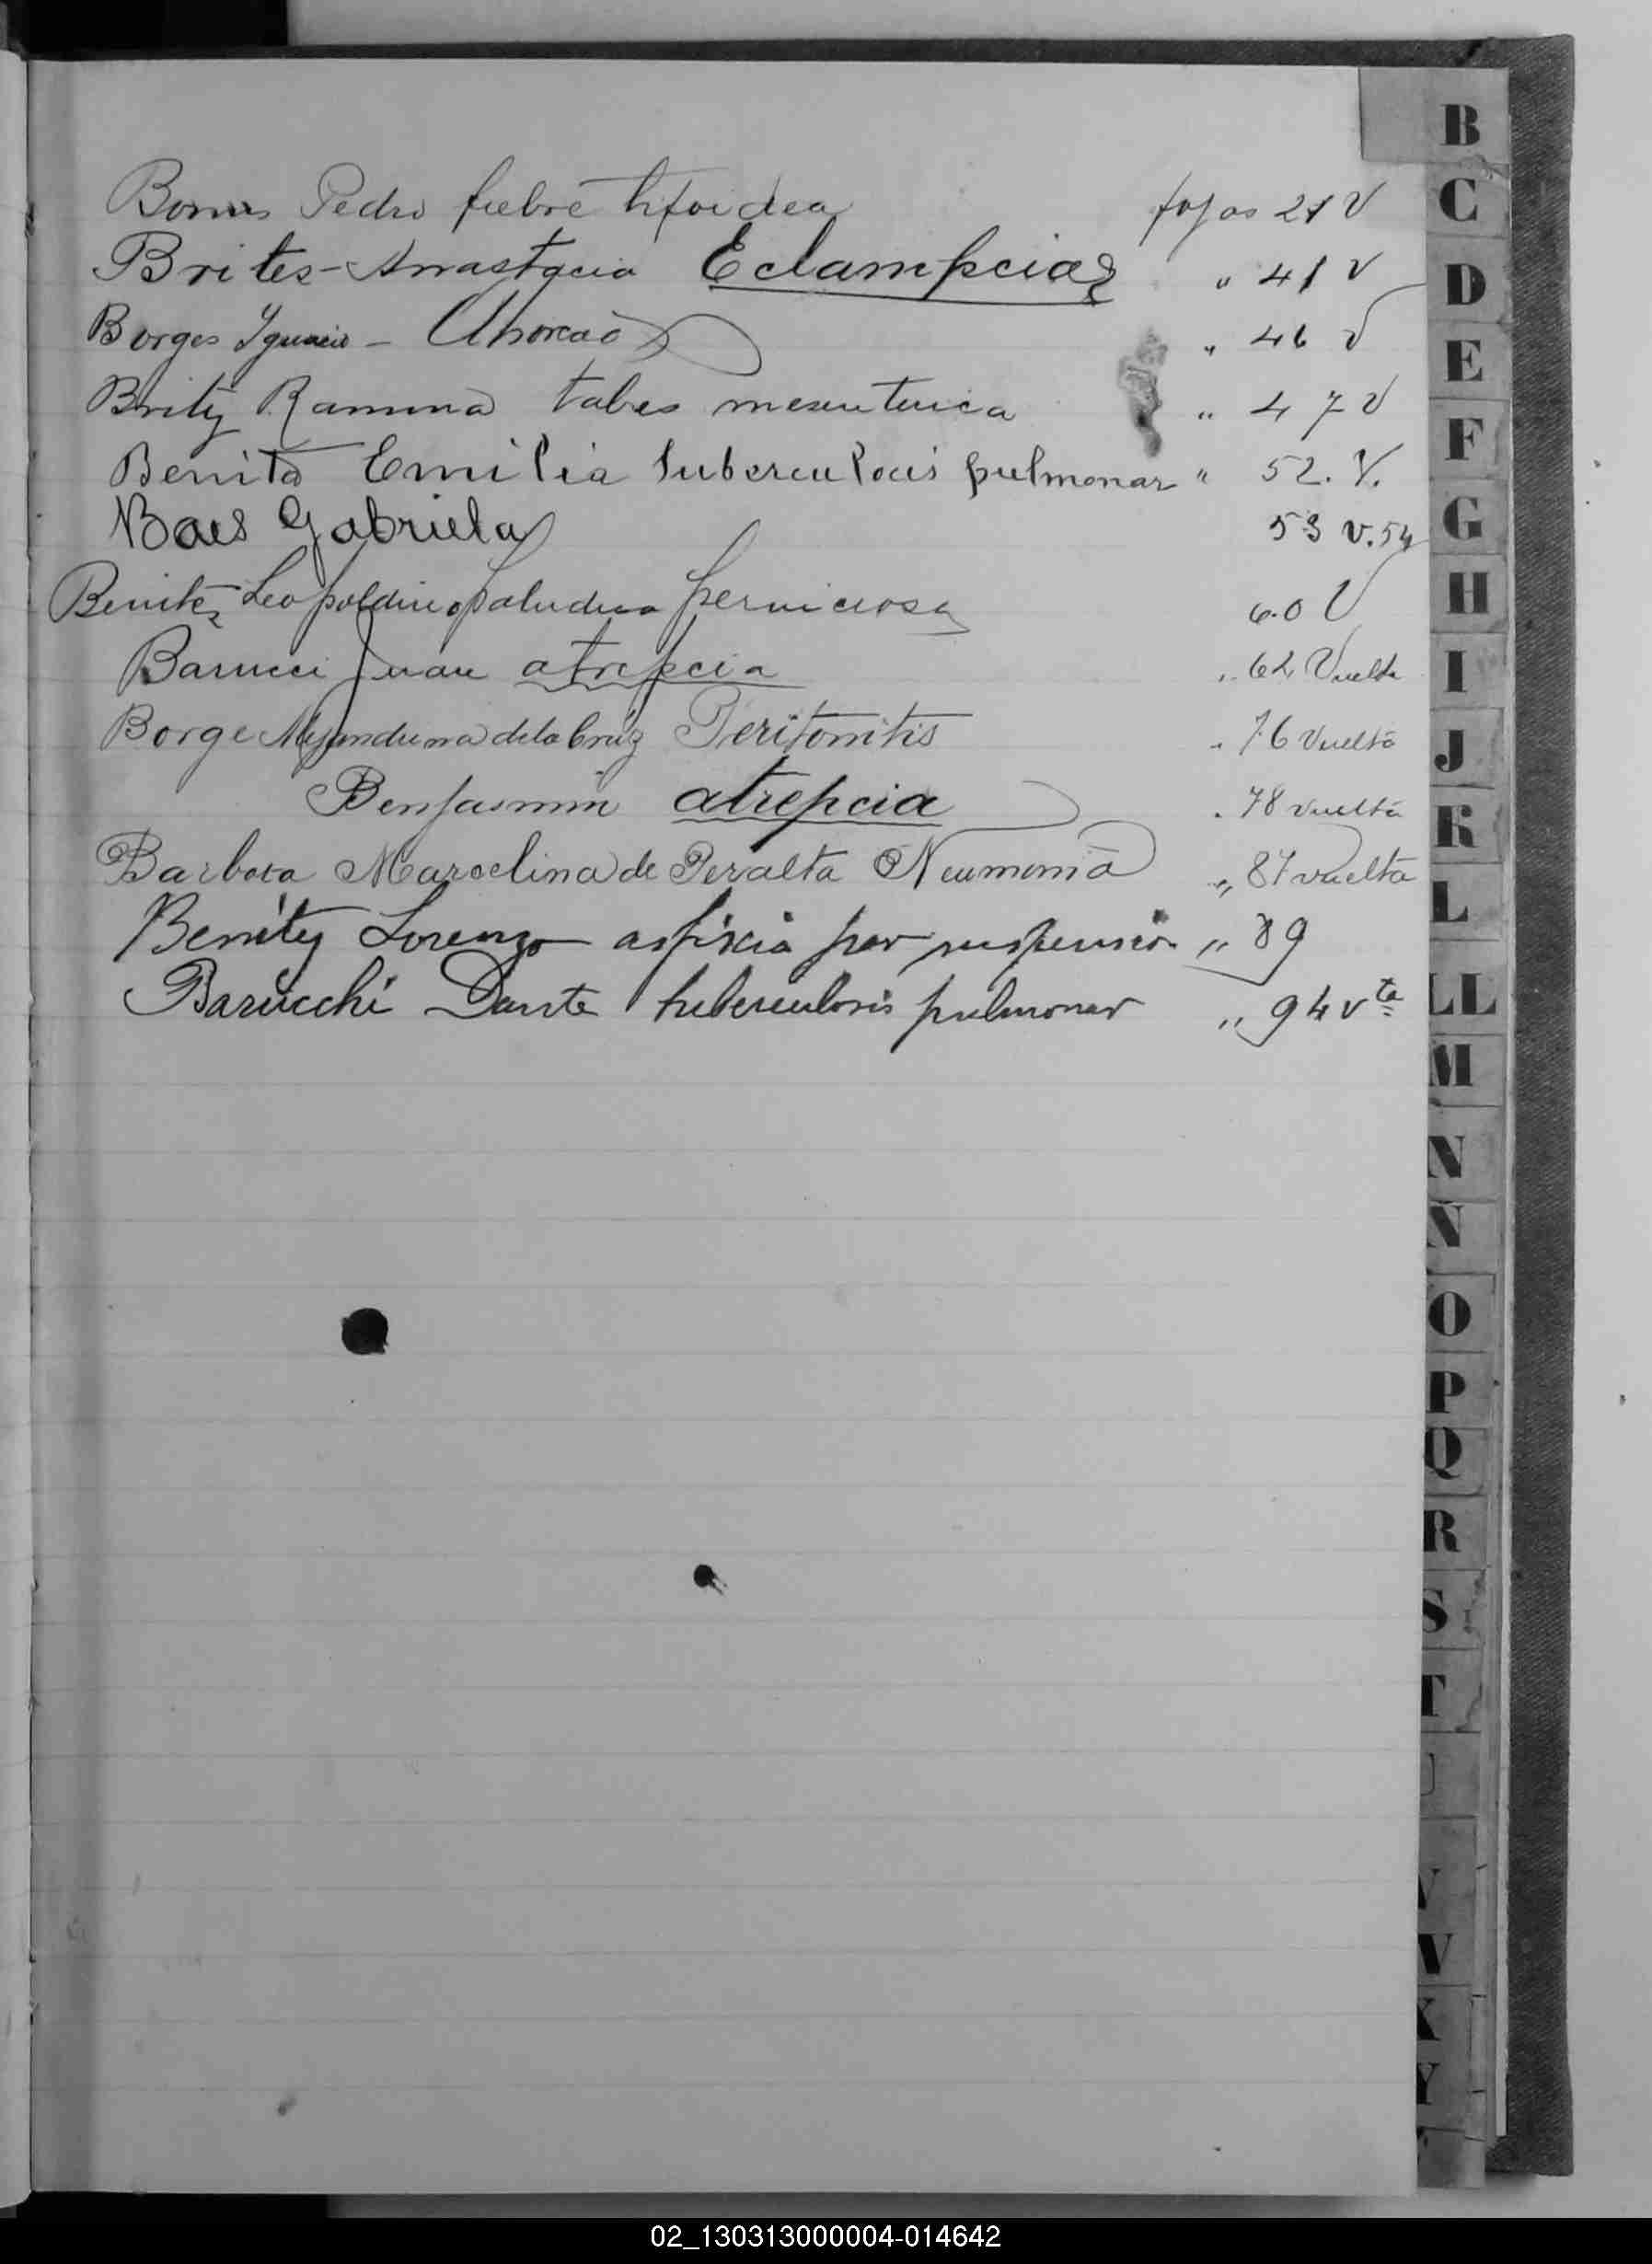 Pedro fiebre tifoidea fojas 21 V
Brites - Anastacia Eclampcia " 41 V
Borges Ygnacio - Ahorcado " 46 V
Brítez Ramona tabes mesenterica " 47 V
Benita Emilia tuberculocis pulmonar " 52. V.
Baes Gabriela 53 v. 54
Benitez Leopoldino paludica perniciosa 60 V
Barucci Juan atrepcia " 62 Vuelta
Borge Alejandrina de la Cruz Peritonitis " 76 vuelta
Benjasmin atrepcia " 78 vuelta
Barbosa Marcelina de Peralta Neumonia " 87 vuelta
Benítez Lorenzo asfixia por suspension " 89
Barucchi Dante tuberculosis pulmonar " 94 vta
B
C
D
E
F
G
H
I
J
K
L
LL
M
N
Ñ
O
P
Q
R
S
T
U
V
W
X
Y
02_130313000004-014642